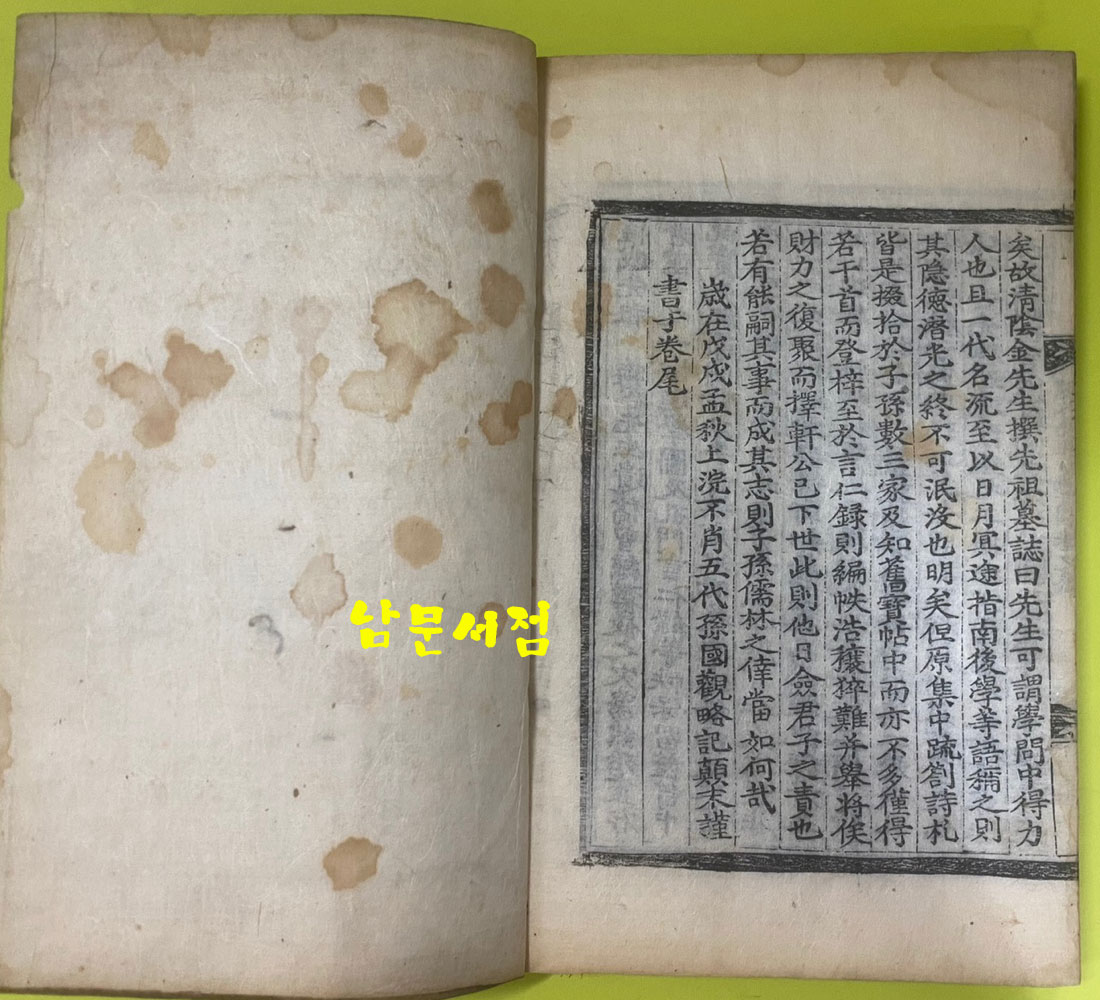 矣故清陰金先生撰先祖墓誌曰先生可謂學問中得力
人也且一代名流至以日月冥途指南後學等語稱之則
其隐德潛光之終不可泯没也明矣但原集中疏劄詩札
皆是掇拾於子孫數三家及知舊寶帖中而亦不多僅得
若干首而登梓至於言仁録則編帙浩穰猝難并舉將俟
財力之復聚而擇軒公已下世此則他日僉君子之責也
若有能嗣其事而成其志則子孫儒林之倖當如何哉
歲在戊戌孟秋上浣不肖五代孫國觀略記顛末謹
書于卷尾
남문서점